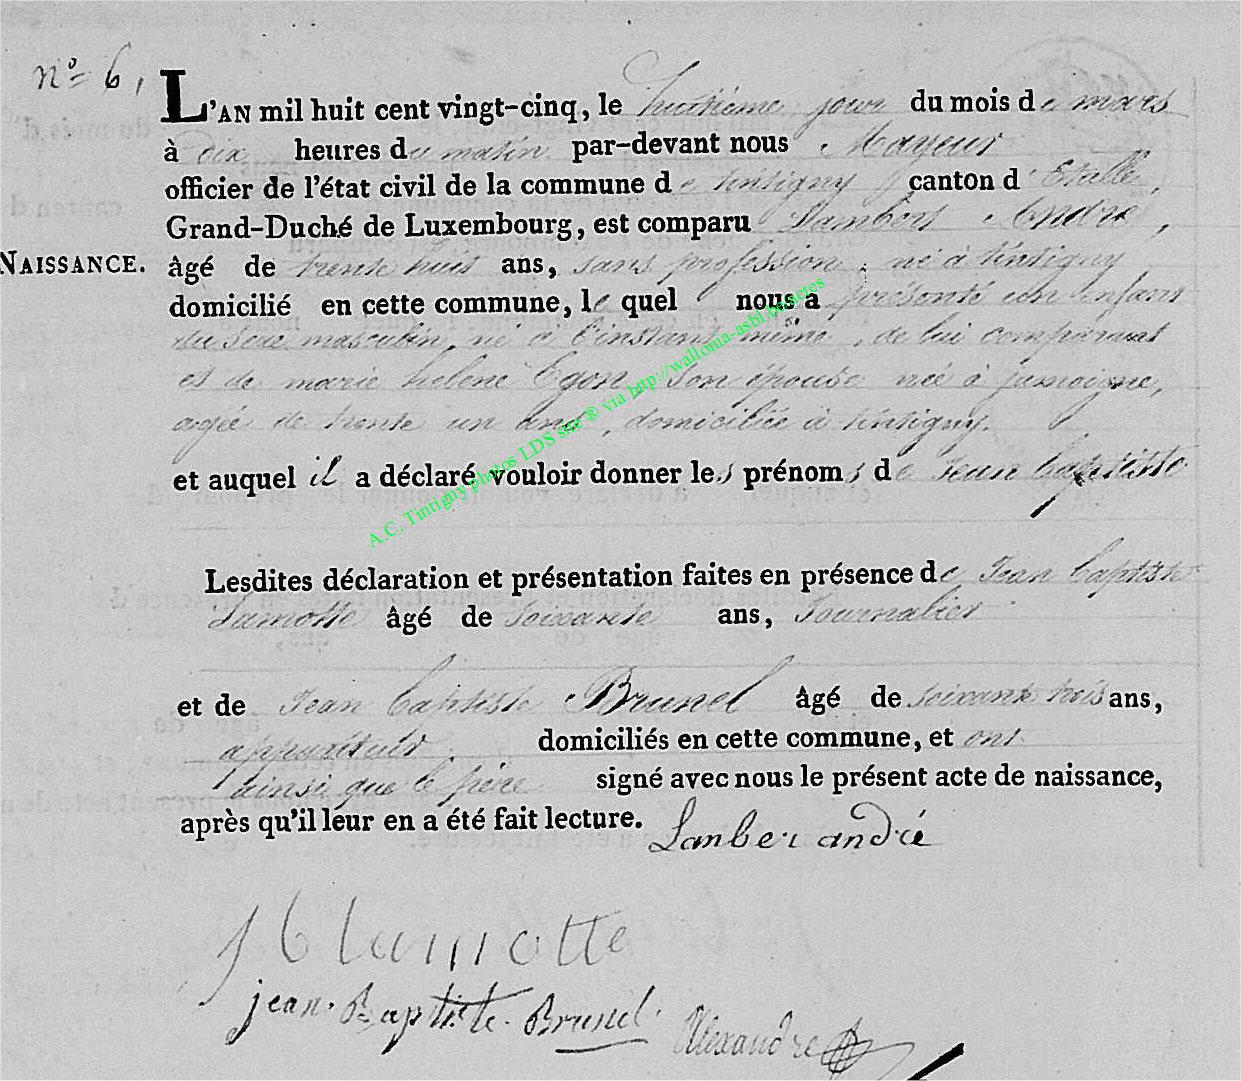 n° 6,
L'AN mil huit cent vingt-cinq, le huitieme jour du mois de mars
à dix heures du matin par-devant nous Mayeur
officier de l'état civil de la commune de tintigny canton d'Etalle,
Grand-Duché de Luxembourg, est comparu Lambert André,
NAISSANCE. âgé de trente huit ans, sans profession, né à tintigny
domicilié en cette commune, le quel nous a présenté un enfant
du sexe masculin, né à l'instant même, de lui comparant
et de marie helene Egon, son épouse née à jamoigne,
agée de trente un ans, domiciliée à tintigny.
et auquel il a déclaré vouloir donner les prénoms de Jean baptiste
Lesdites déclaration et présentation faites en présence de Jean baptiste
Lamotte âgé de soixante ans, Journalier
et de Jean baptiste Brunel âgé de soixante trois ans,
appariteur domiciliés en cette commune, et ont
ainsi que le père signé avec nous le présent acte de naissance,
après qu'il leur en a été fait lecture.
Lamber andré
J b lamotte
jean Baptiste Brunel
Alexandre
A.C. Tintigny photos LDS site ® via http://wallonia-asbl.be/actes